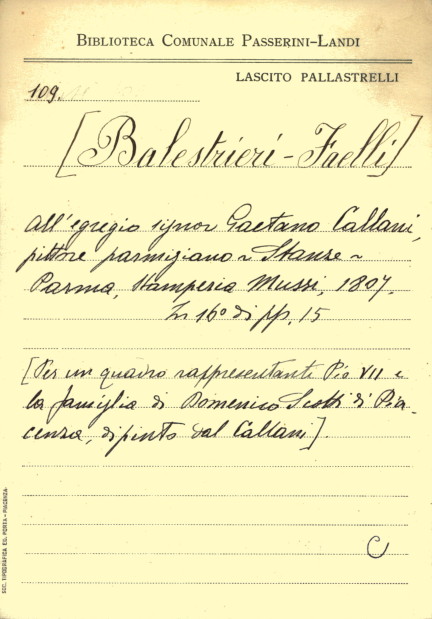 BIBLIOTECA COMUNALE PASSERINI-LANDI
LASCITO PALLASTRELLI
109.
[Balestrieri-Faelli]
All'egregio signor Gaetano Callani,
pittore parmigiano ~ Stanze ~
Parma, Stamperia Mussi, 1807.
In 16° di pp. 15
[Per un quadro rappresentante Pio VII e
la famiglia di Domenico Scotti di Pia-
cenza, dipinto dal Callani].
C
SOC. TIPOGRAFICA ED. PORTA - PIACENZA